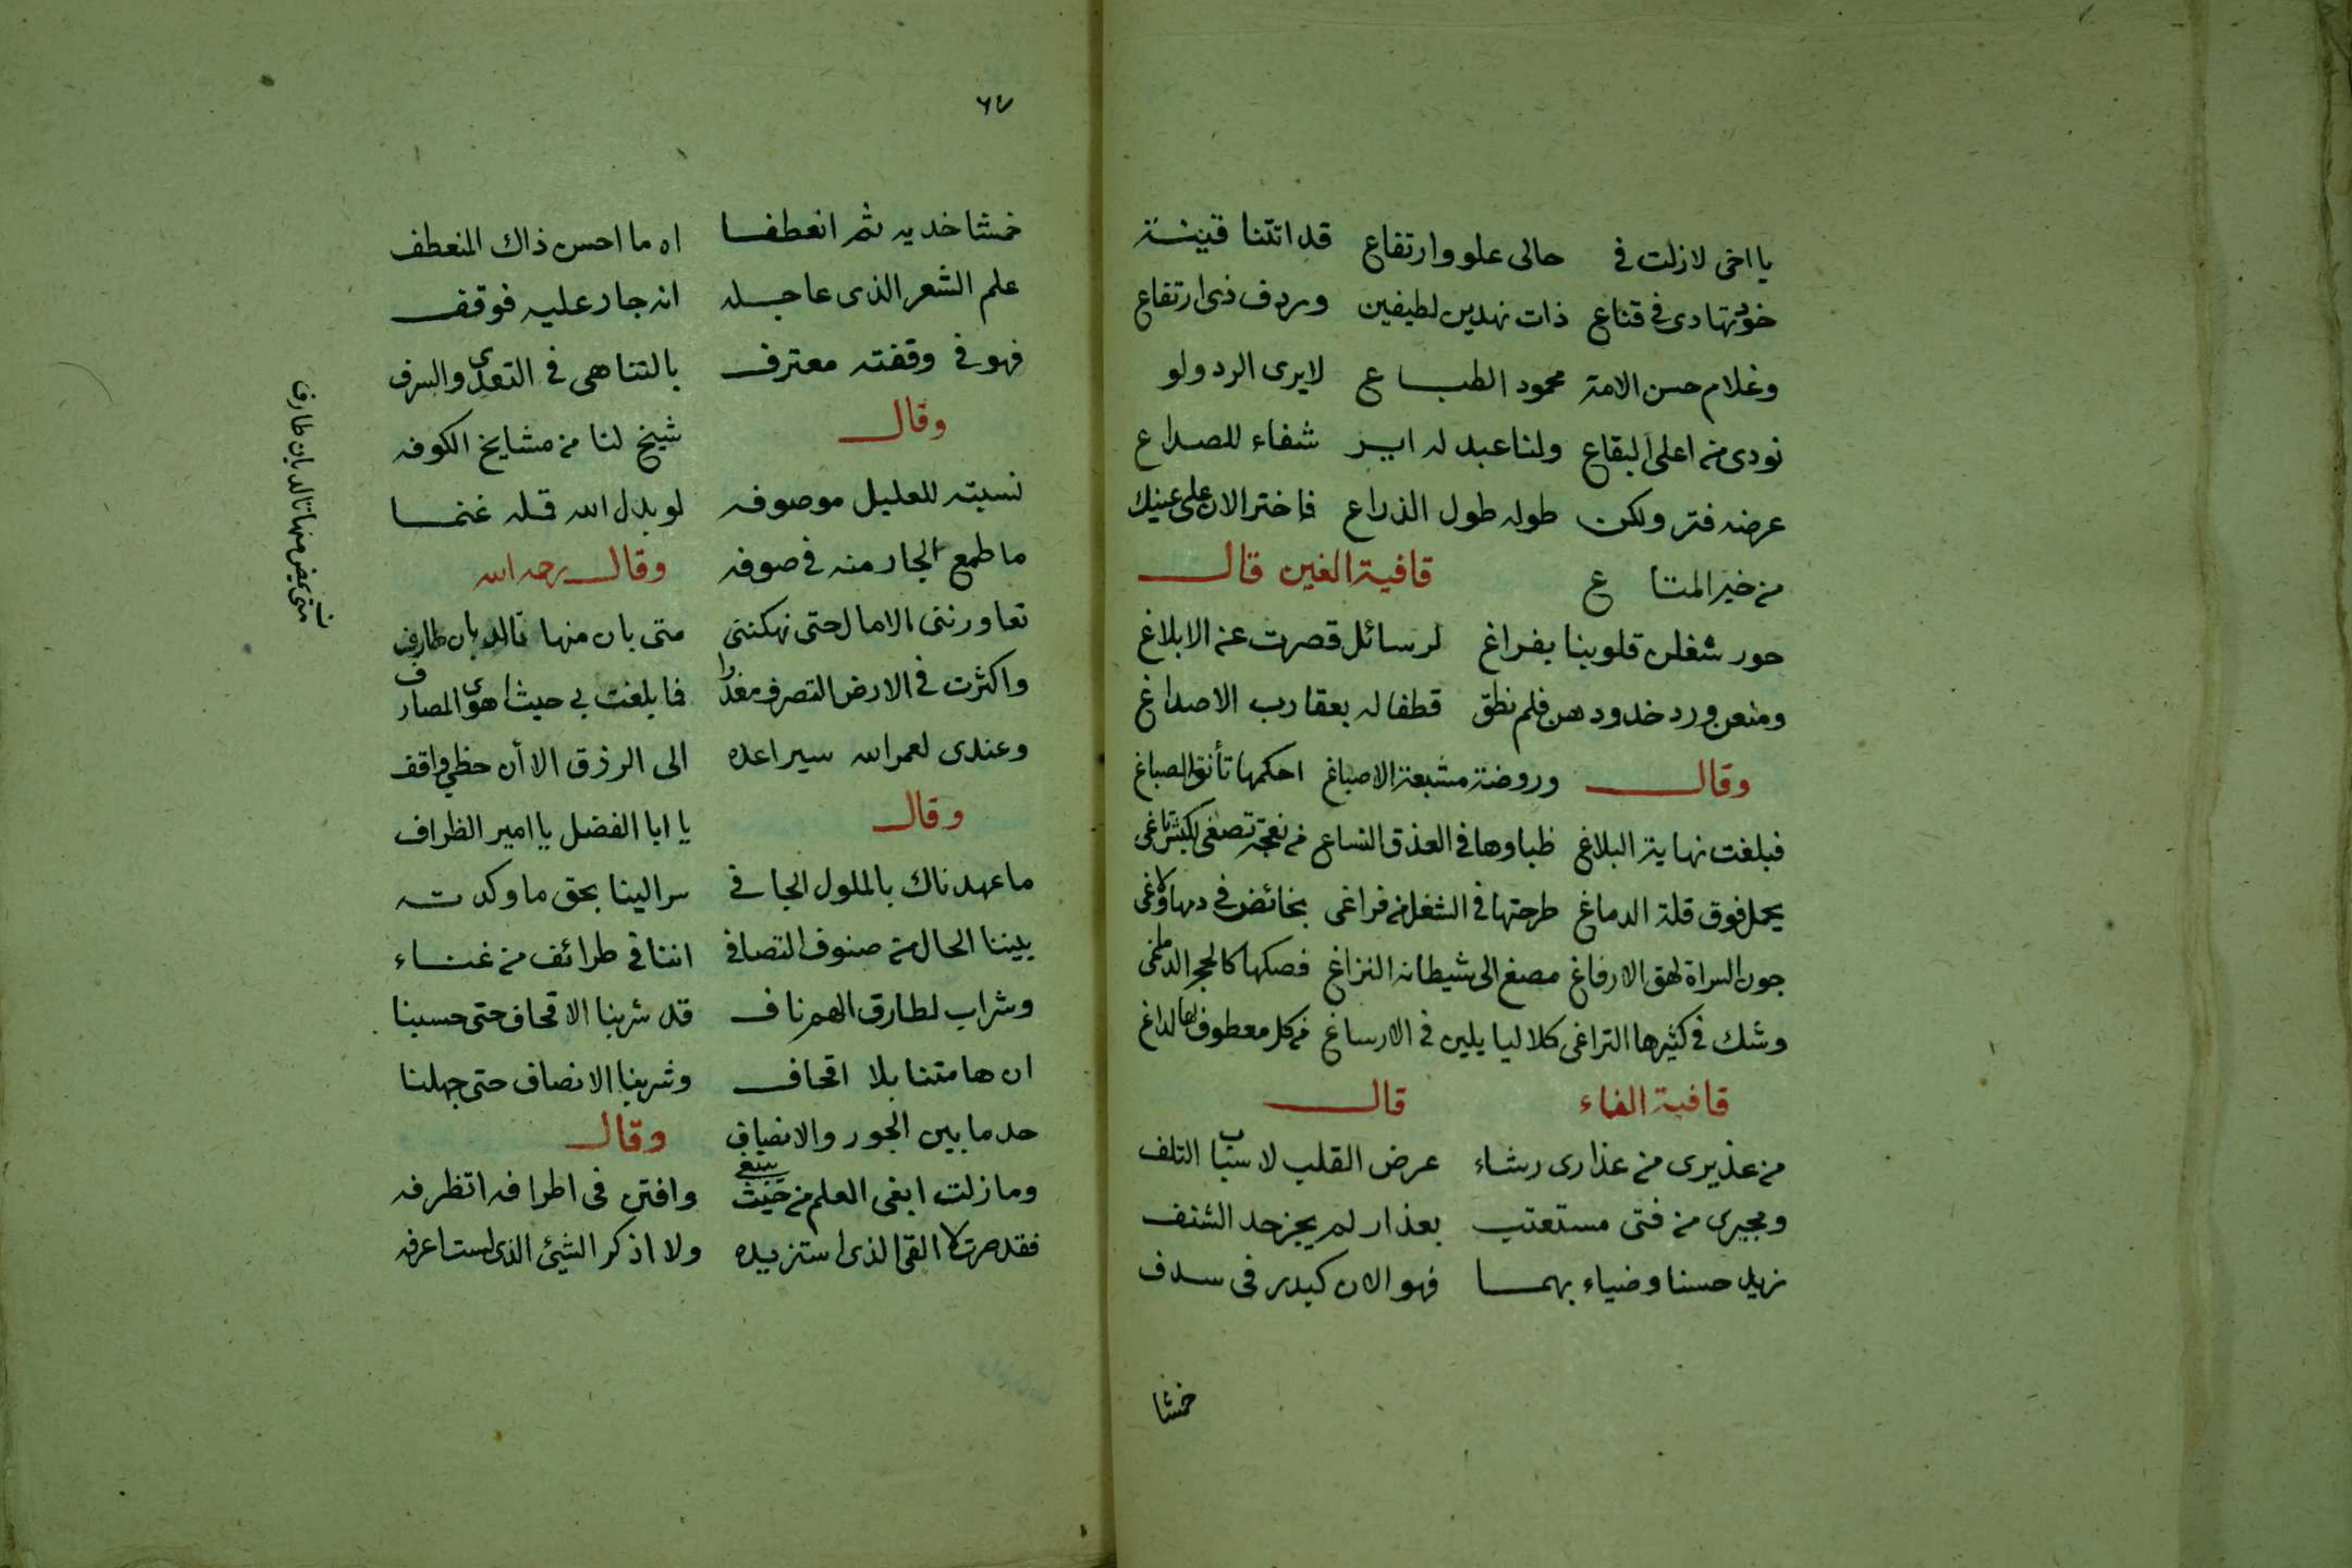 يا اخى لازلت فى حالى علو وارتفاع قد اتتنا قينـة
خود تهادى فى قناع ذات نهدين لطيفين وردف ذى ارتفاع
وغلام حسن الامة محمود الطباع لايرى الرد ولو
نودى من اعلى البقاع ولنا عبد له اير شفاء للصداع
عرضه فتر ولكن طوله طول الذراع فاختر الان على عينيك
من خير المتاع قافية الغين قال
حور شغلن قلوبنا بفراغ لرسائل قصرت عن الابلاغ
ومنعن ورد خدودهن فلم نطق قطفا له بعقارب الاصداغ
وقال وروضة مشبعة الاصباغ احكمها تأنق الصباغ
فبلغت نهاية البلاغ ظباوها فى العذق من نعجة تصغى لكبش ثاغى
يحمل فوق قلة الدماغ طرحتها فى الشغل من فراغى بخائض فى دمها ولاغى
جون السراة لهق الارفاغ مصغ الى شيطانه النزاغ فصكها كالحجر الدماغى
وشك فى كثيرها التراغى كلاليا يلين فى الارساغ من كل معطوف لها لداغ
قافية الفاء قال
من عذيرى من عذارى رشاء عرض القلب لاسباب التلف
ومجيرى من فتى مستعتب بعذار لم يجز حد الشنف
زيد حسنا وضياء بهما فهو الان كبدر فى سدف
خمشا
٦٧
خمشا خديه ثم انعطفا اه ما احسن ذاك المنعطف
علم الشعر الذى عاجله انه جار عليه فوقف
فهو فى وقفته معترف بالتناهى فى التعدى والسرف
وقال شيخ لنا من مشايخ الكوفه
نسبته للعليل موصوفه لو بدل الله قمله غنما
ما طمع الجار منه فى صوفه وقال رحمه الله
تعاورنتى الامال حتى نهكننى متى بان منها تالد بان طارف
واكثرت فى الارض التصرف مغدا فما بلغت بى حيث اهوى المصارف
وعندى لعمر الله سير اعده الى الرزق الا أن حظى واقف
وقال يا ابا الفضل يا امير الظراف
ما عهدناك بالملول الجافى سر الينا بحق ما وكدته
بيننا الحال من صنوف التصافى اننا فى طرائف من غناء
وشراب لطارق الهم ناف قد شربنا الاقحاف حتى حسبنا
ان هامتنا بلا اقحاف وشربنا الانصاف حتى جهلنا
حد ما بين الجور والانصاف وقال
ومازلت ابغى العلم من حيث يبتغى وافتن فى اطرافه اتظرفه
فقد صرت لا القى الذى استزيده ولا اذكر الشيئ الذى لست اعرفه
متى يمض منها تالد بان طارف